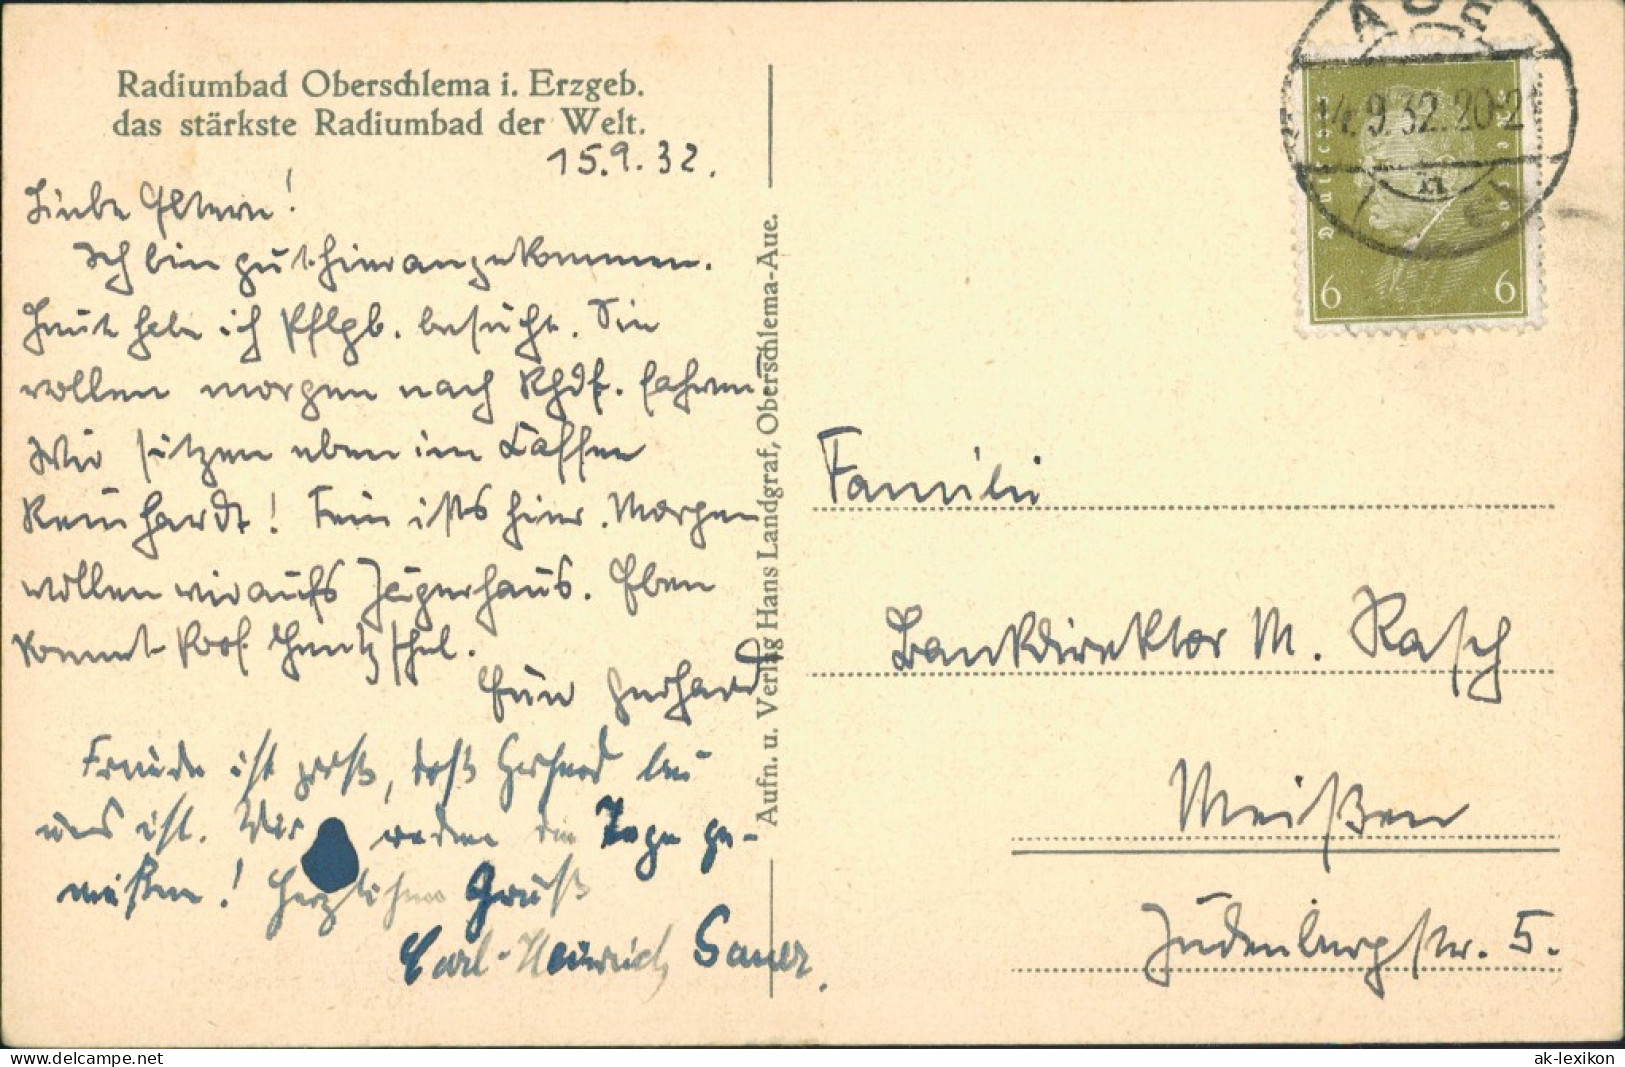 Radiumbad Oberschlema i. Erzgeb.
das stärkste Radiumbad der Welt.
15.9.32.
Liebe Eltern!
Ich bin gut hier angekommen.
Heute habe ich besucht. Sie
wollen morgen nach fahren
Wir sitzen eben im Kaffee
Reinhardt! Fein ists hier. Morgen
wollen wir aufs Jägerhaus. Eben
kommt Prof. Hentzschel.
Euer Gerhard
Freude ist groß, daß Gerhard bei
uns ist. Wir werden die Tage ge-
nießen! Herzlichen Gruß
Carl-Heinrich Sauer.
Aufn. u. Verlag Hans Landgraf, Oberschlema-Aue.
AUE
14.9.32.20-21
Deutsches Reich
6 6
Familie
Bankdirektor M. Rasch
Meißen
Judenbergstr. 5.
www.delcampe.net
ak-lexikon